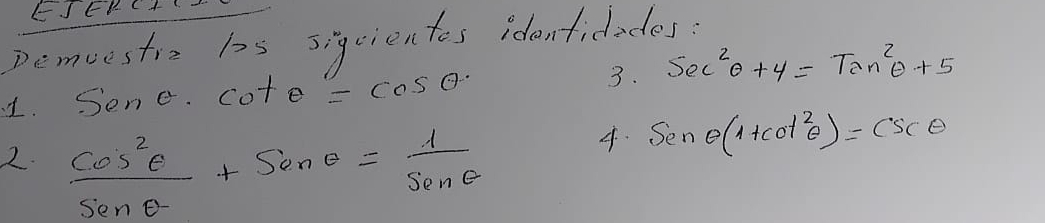 EJERCICIO
Demuestra las siguientes identidades:
1. Sen θ. cot θ = cos θ.
2. Cos²θ / Sen θ + Sen θ = 1 / Sen θ
3. Sec²θ + 4 = Tan²θ + 5
4. Sen θ(1+cot²θ) = CSC θ